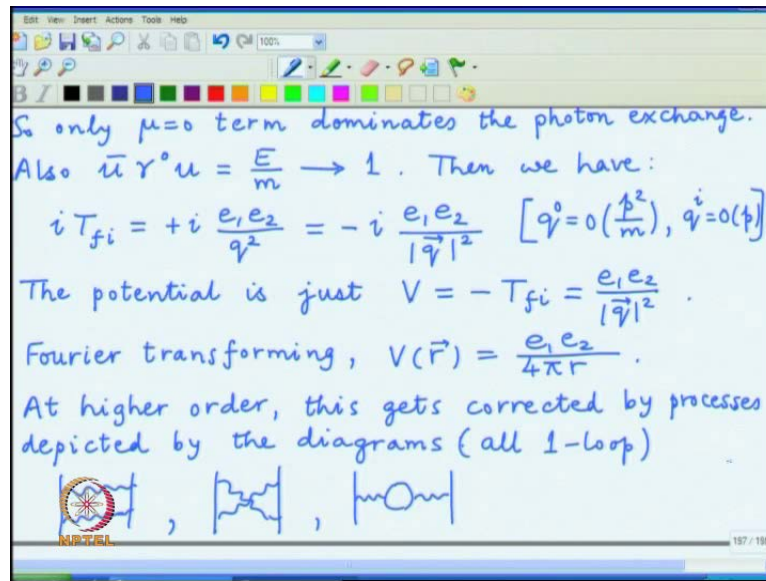 Edit View Insert Actions Tools Help
100%
B I
So only μ=0 term dominates the photon exchange.
Also ū γ⁰ u = E/m → 1 . Then we have:
i T_fi = + i e₁e₂/q² = - i e₁e₂/|q⃗|² [q⁰=O(p²/m), qⁱ=O(p)]
The potential is just V = - T_fi = e₁e₂/|q⃗|² .
Fourier transforming, V(r⃗) = e₁e₂/4πr .
At higher order, this gets corrected by processes
depicted by the diagrams (all 1-loop)
, ,
NPTEL